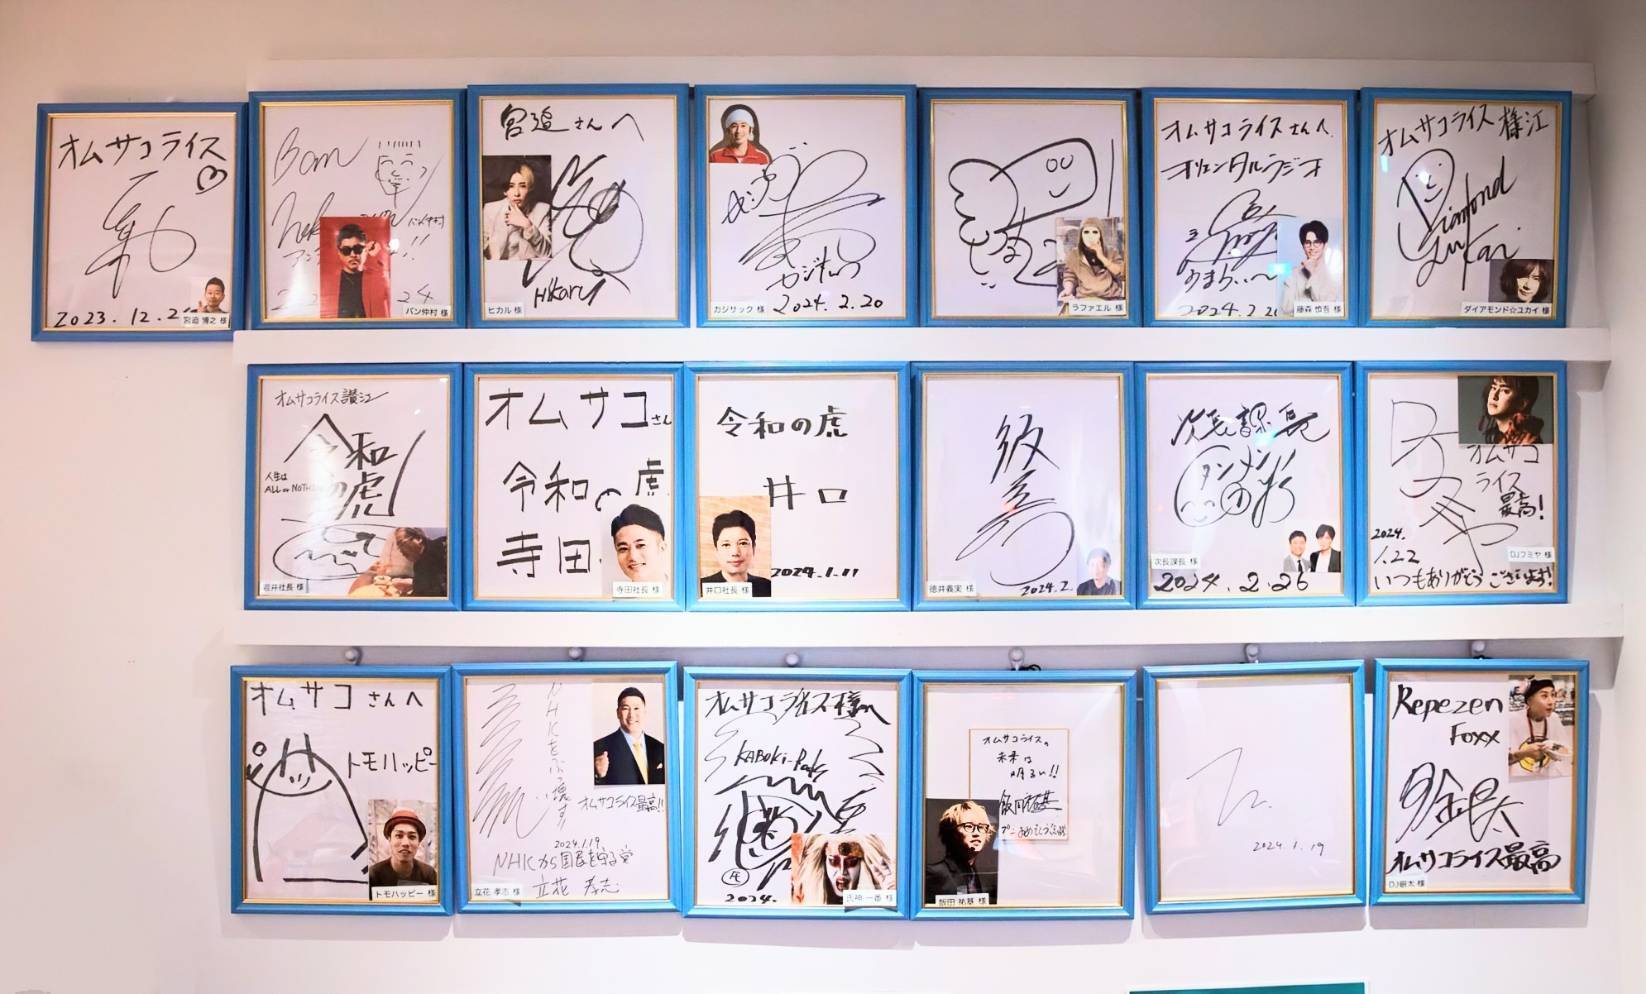 オムサコライス
2023.12.2
宮迫 博之 様
Ban
バン仲村
24
バン仲村 様
宮迫さんへ
Hikaru
ヒカル 様
カジサック
2024.2.20
カジサック 様
ラファエル 様
オムサコライスさんへ
オリエンタルラジオ
うまらぃ〜
2024.2.2
藤森 慎吾 様
オムサコライス 様江
Diamond
Yukai
ダイアモンド☆ユカイ 様
オムサコライス讃江
令和
の虎
人生は
ALL or NOTHIN
岩井社長 様
オムサコさん
令和の虎
寺田
寺田社長 様
令和の虎
井口
2024.1.11
井口社長 様
2024.2.
徳井義実 様
次長課長
タンメン
の
次長課長 様
2024.2.26
オムサコ
ライス
最高!
2024.
1.22
DJフミヤ 様
いつもありがとうございます!
オムサコさんへ
トモハッピー
トモハッピー 様
NHKをぶっ壊す!
オムサコライス最高!!
2024.1.19
NHKから国民を守る党
立花 孝志
立花 孝志 様
オムサコライス様へ
KABUKi-Rocks
2024.
氏神一番 様
オムサコライスの
未来は
明るい!!
飯田祐基
飯田 祐基 様
2024.1.19
Repezen
Foxx
DJ銀太
オムサコライス最高
DJ銀太 様